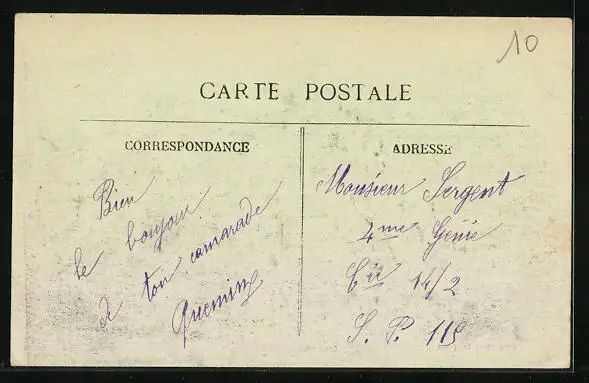 10
CARTE POSTALE
CORRESPONDANCE
Bien
le bonjour
de ton camarade
ADRESSE
Monsieur Sergent
4me Génie
Cie 14/2
S. P. 115